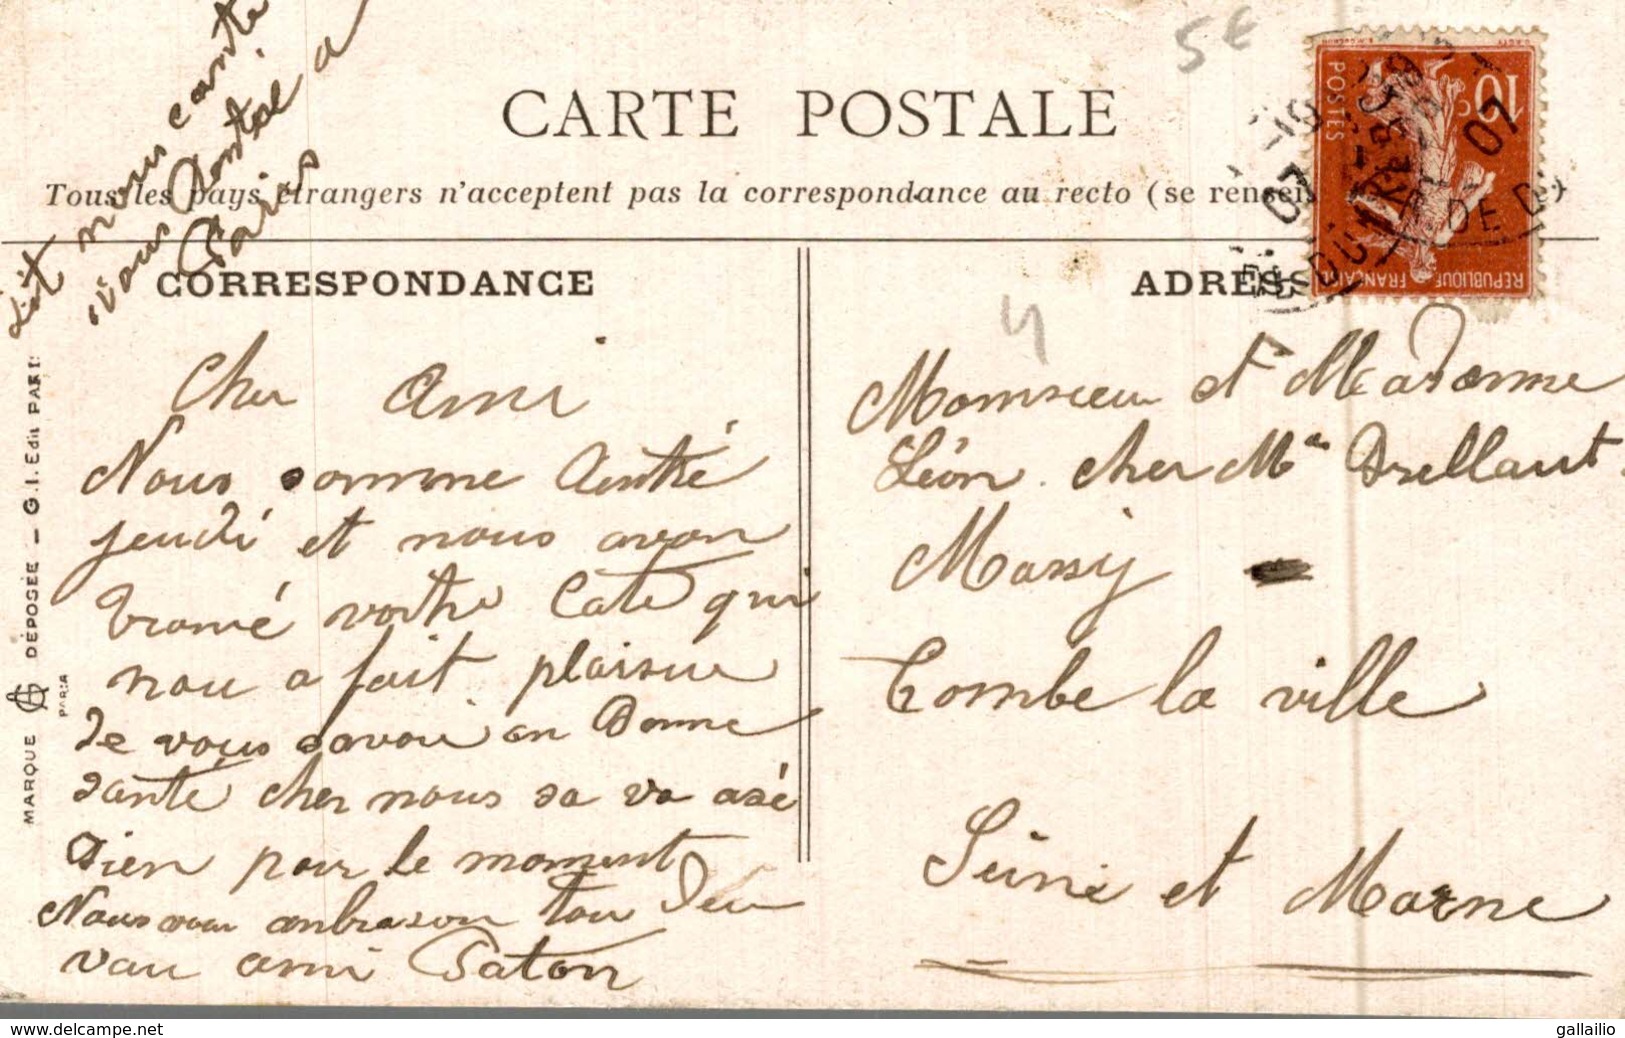 5€
CARTE POSTALE
Tous les pays étrangers n'acceptent pas la correspondance au recto (se rensei
10c
POSTES
REPUBLIQUE FRANÇAISE
07
DE D
CORRESPONDANCE
ADRESSE
Cher Ami
Nous somme Antré
jeudi et nous avon
trouvé votre Cate qui
nou a fait plaisire
de vous savoir en Bonne
santé cher nous sa va asé
Bien pour le moment
Nous vou anbrason tou Deu
vau ami Paton
nous conte
vous Dontal a
Paris
4
Monsieur et Madame
Léon cher Mme Brellaut
Massy
Combe la ville
Seine et Marne
MARQUE DÉPOSÉE — G.I. Edit PARIS
PARIA
www.delcampe.net
gallailio